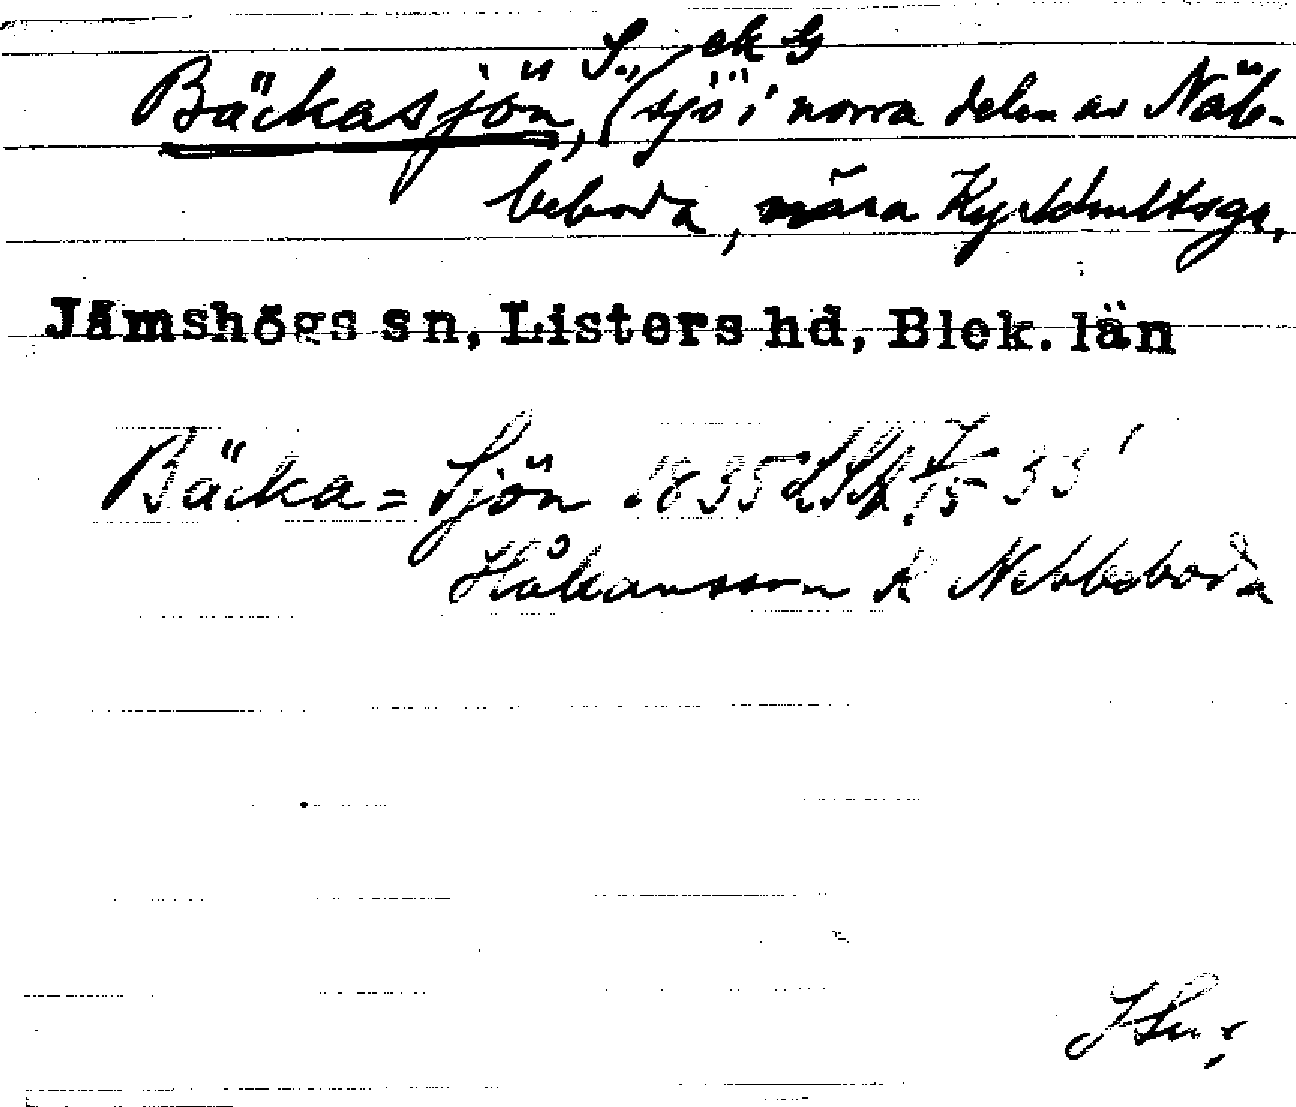 S. ek G
Bäckasjön, (sjö i norra delen av Näb-
beboda, nära Kyrkhultsgr.
Jämshögs sn, Listers hd, Blek. län
Bäcka = Sjön 1835 LSA 33
Håkansson k Nebbeboda